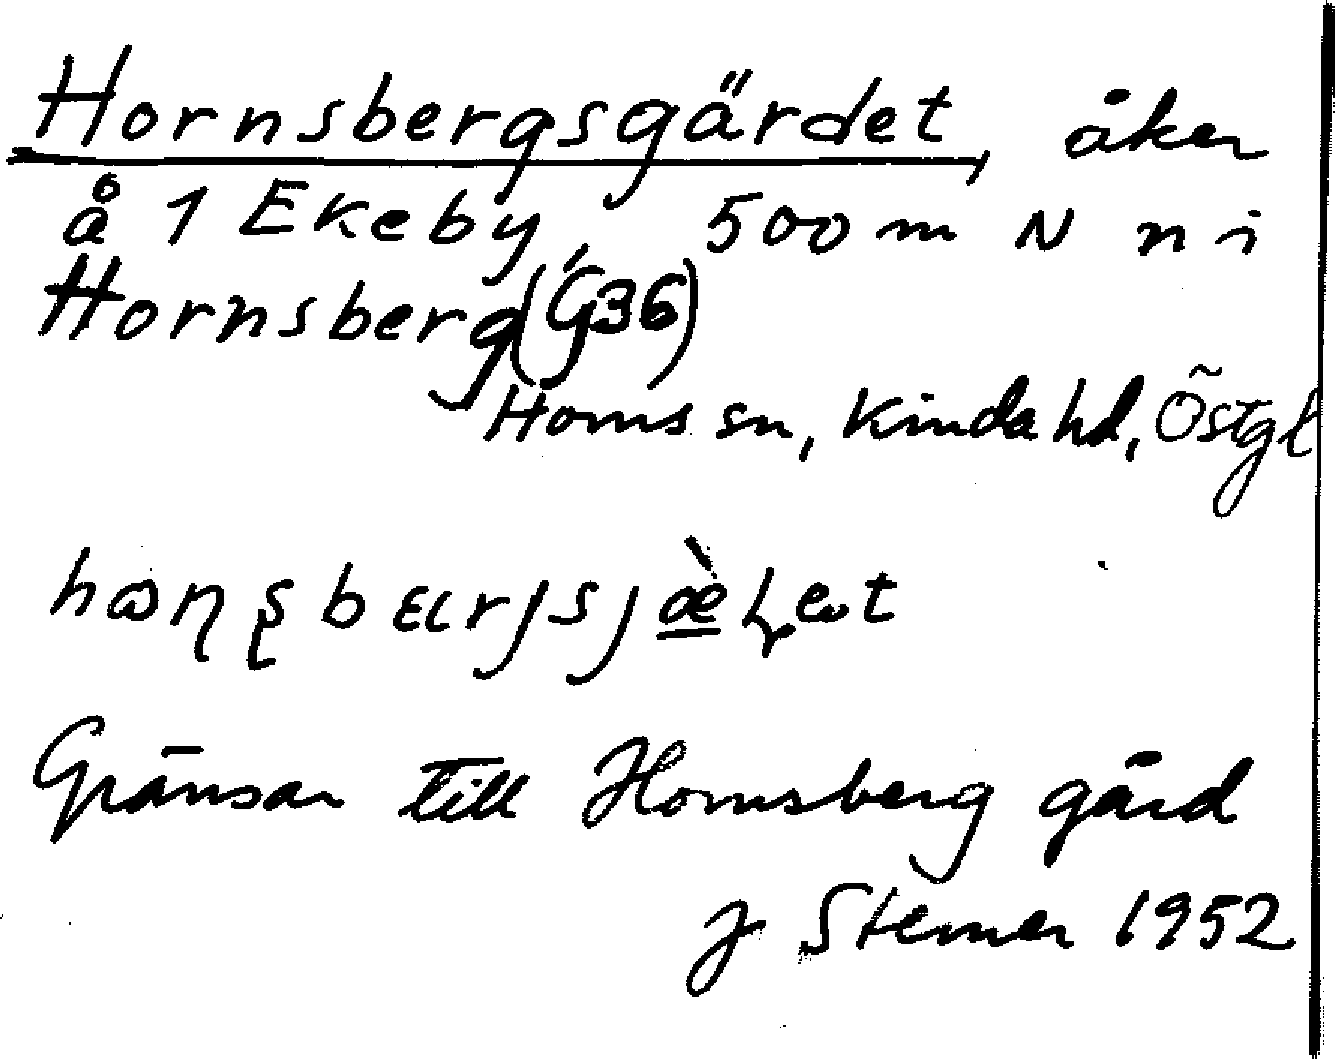 Hornsbergsgärdet, åker
å 1 Ekeby, 500 m N n i
Hornsberg (G36)
Horns sn, Kinda hd, Östgl
Gränsar till Hornsberg gård
J Sterner 1952